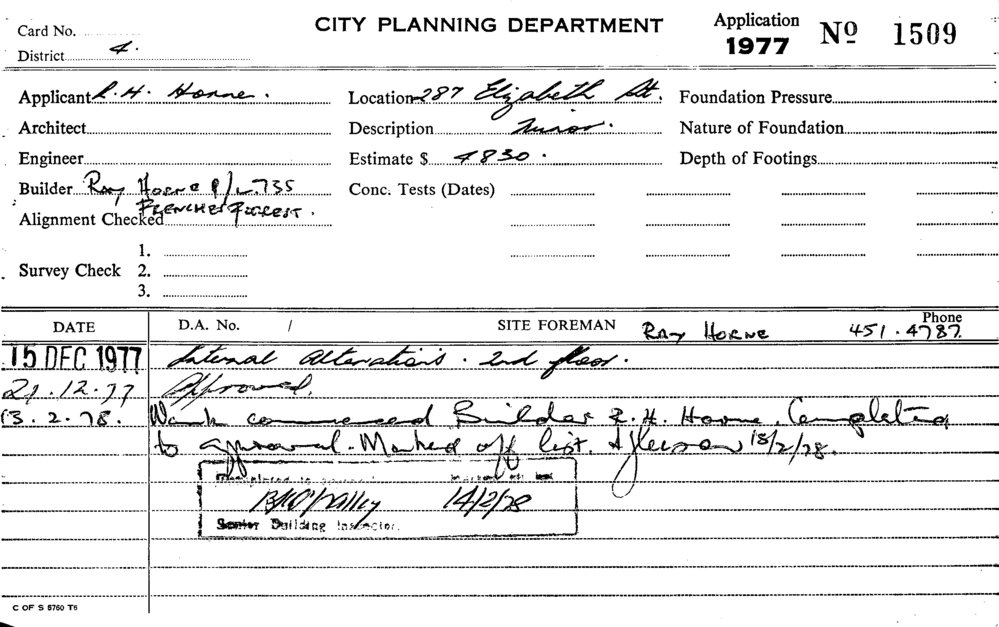 Card No.
CITY PLANNING DEPARTMENT
Application 1977 Nº 1509
District 4.
Applicant R.H. Horne. Location 287 Elizabeth St. Foundation Pressure
Architect Description Minor. Nature of Foundation
Engineer Estimate $ 4830. Depth of Footings
Builder Ray Horne P/L 735 Conc. Tests (Dates)
Frenches Forest.
Alignment Checked
1.
Survey Check 2.
3.
DATE D.A. No. / SITE FOREMAN Ray Horne Phone 451.4787
15 DEC 1977 Internal Alterations. 2nd floor.
21.12.77 Approved.
13.2.78. Work commenced Builder R.H. Horne. Completed
to approval. Marked off list. 13/2/78.
Completed to Marked off list
14/2/78
Senior Building Inspector.
C OF S 5760 T6